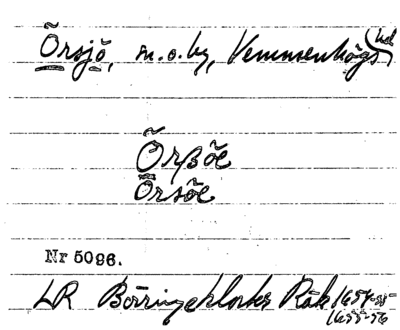 Örsjö, s.o.by, Vemmenhögs hd
Õrßõe
Õrsõe
Nr 5096.
LR Börringeklosters Räk 1654-55
1655-56